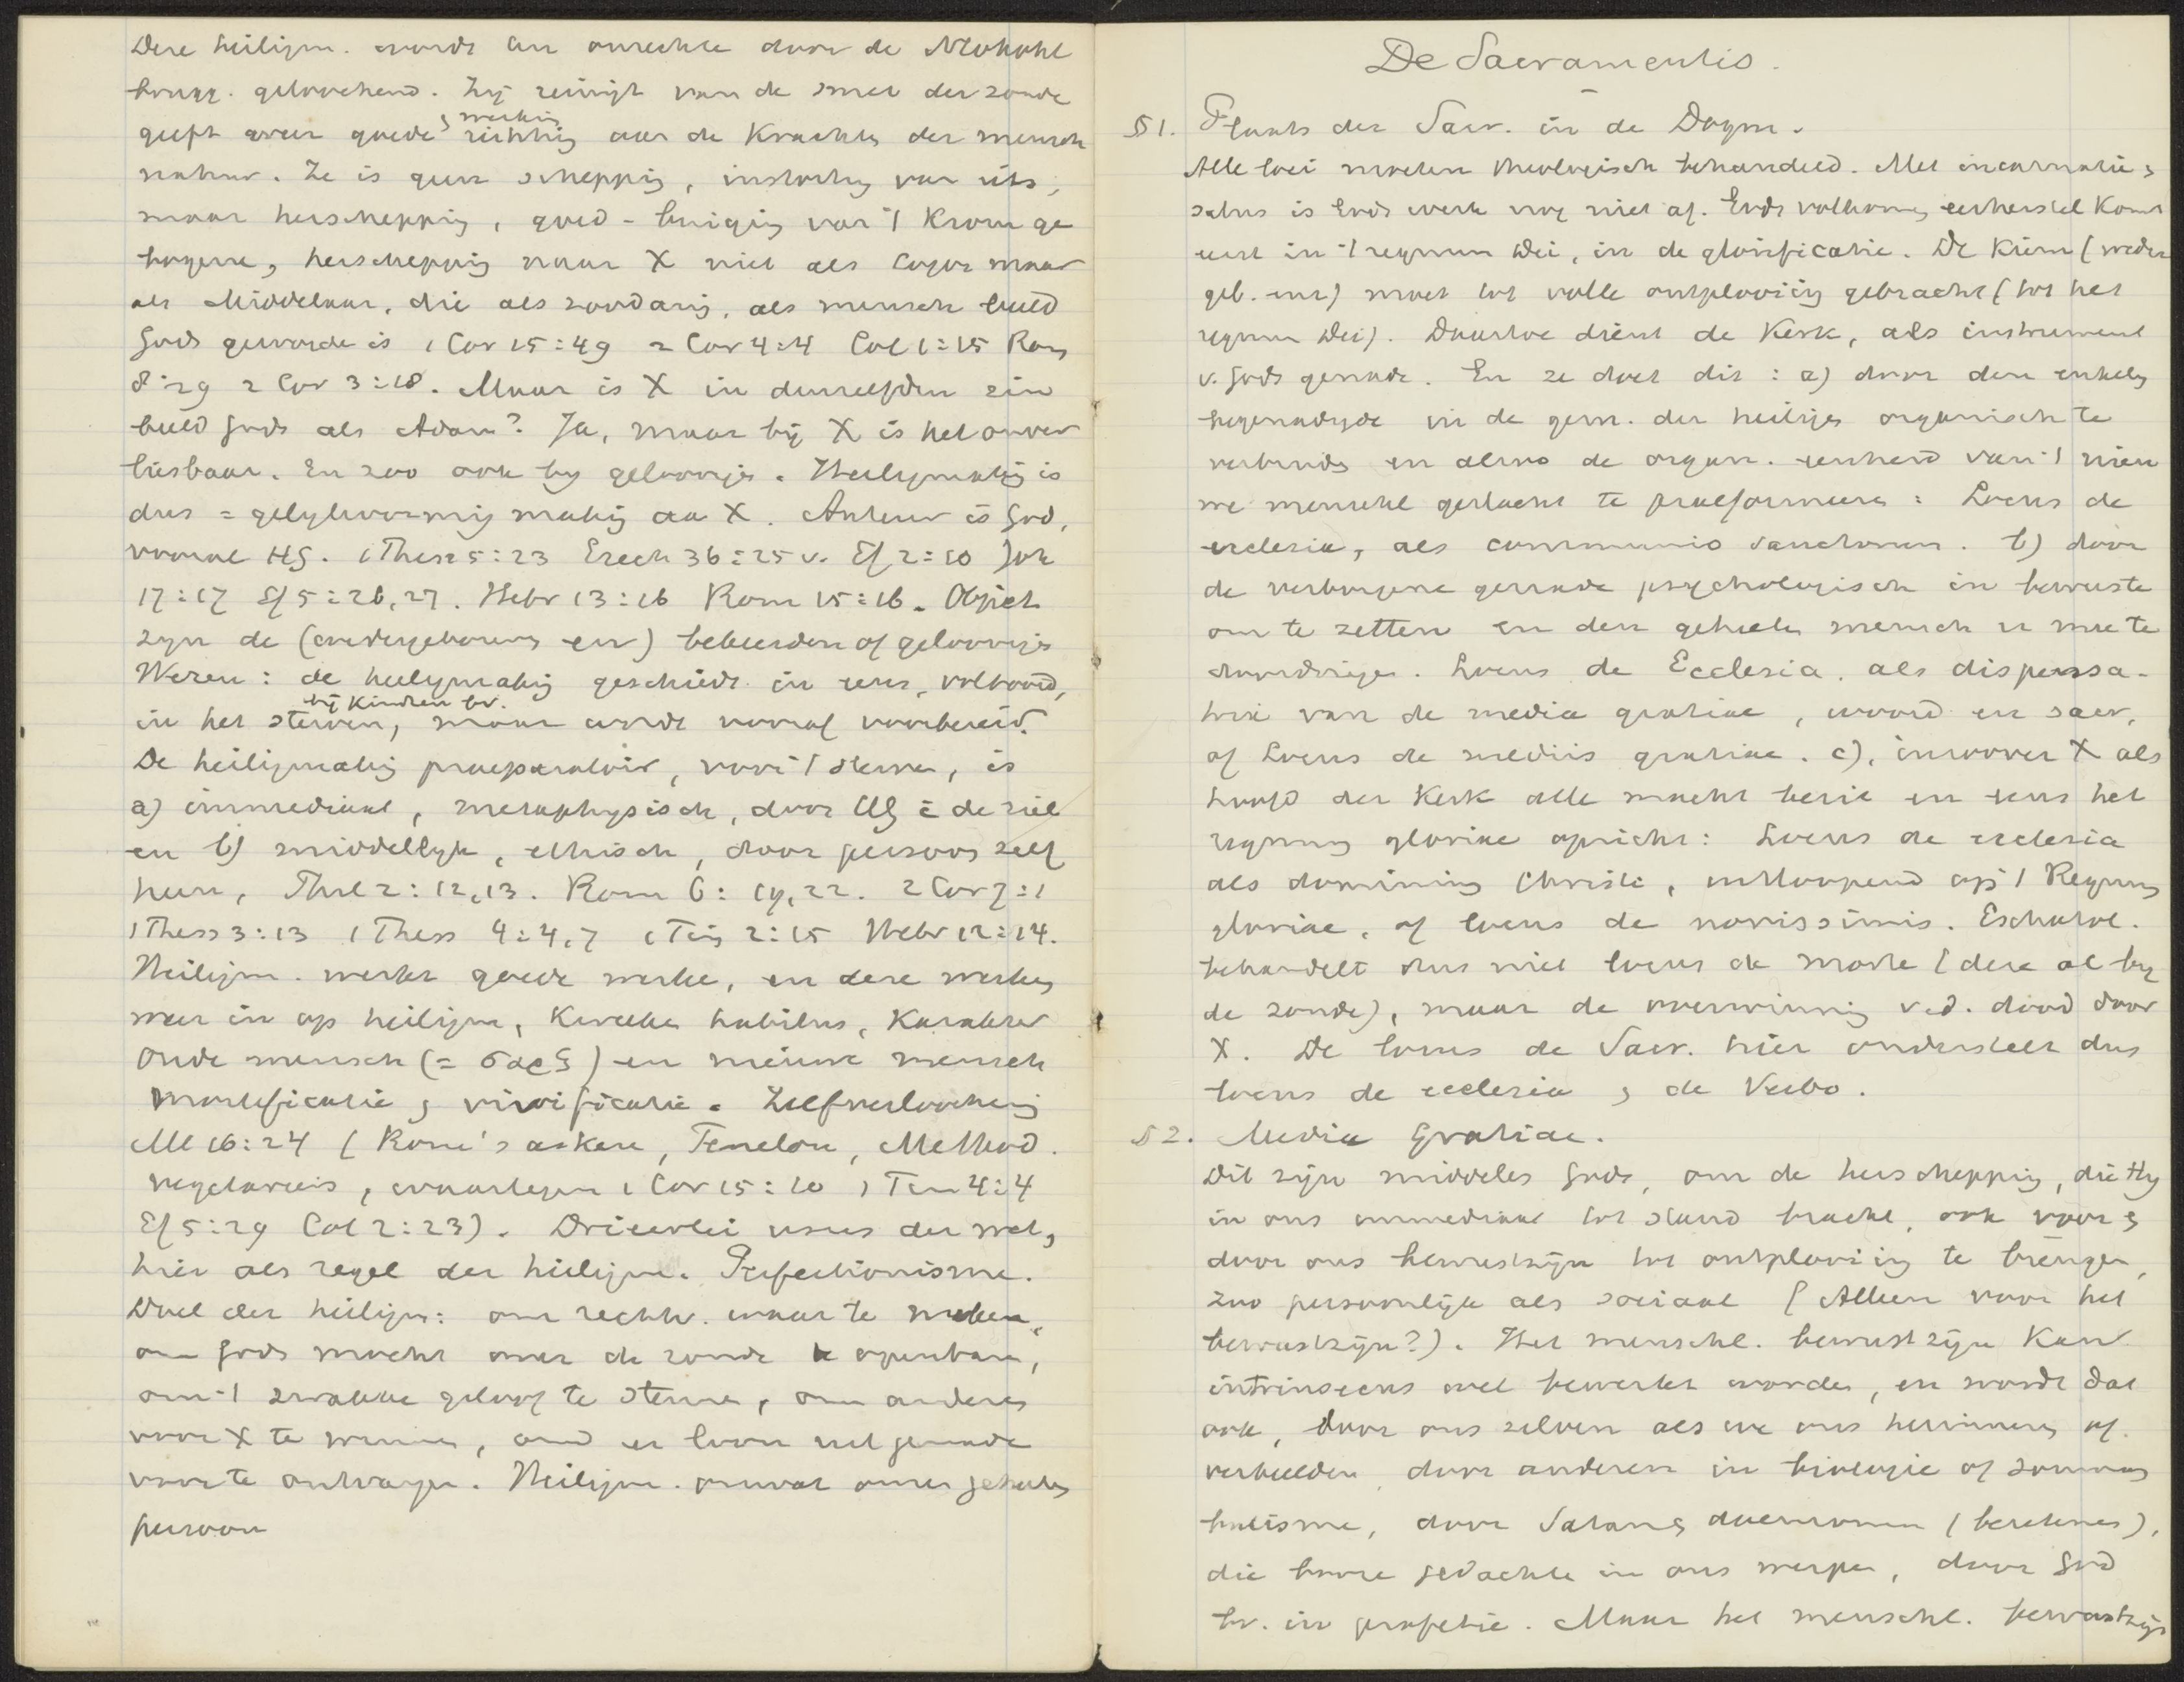 Deze heiligm. wordt ten onrechte door de Neokohl
brugg. geloochend. Zij reinigt van de smet der zonde
geeft weer goede richting aan de krachten der mensch
& werking
natuur. Ze is geen schepping, instorting van iets,
maar herscheppig, goed-buiging van 't krom ge
bogene, herschepping naar X niet als Logos maar
als Middelaar, die als zoodanig, als mensch beeld
Gods geworden is 1 Cor 15:49 2 Cor 4:4 Col 1:15 Rom
8:29 2 Cor 3:18. Maar is X in denzelfden zin
beeld Gods als Adam? Ja, maar bij X is het onver
liesbaar. En zoo ook by geloovigen. Heiligmaking is
dus = gelijkvormig making aan X. Auteur is God,
vooral HG. 1 Thess 5:23 Ezech 36:25 v. Ef 2:10 Joh
17:17 Ef 5:26,27. Hebr 13:16 Rom 15:16. Object
zijn de (wedergeborens en) bekeerden of geloovigen
Wezen: de heiligmaking geschiedt in eens, voltooid,
bij kindren bv.
in het sterven, maar wordt vooraf voorbereid.
De heiligmaking praeparatoir, voor 't sterven, is
a) immediaat, metaphysisch, door HG in de ziel
en b) middellijk, ethisch, door persoon zelf
heen, Phil 2:12,13. Rom 6:19,22. 2 Cor 7:1
1 Thess 3:13 1 Thess 4:4,7 1 Tim 2:15 Hebr 12:14.
Heiligm. werkt goede werken, en deze werken
weer in op heiligm, kweeken habitus, karakter
Oude mensch (= σαρξ) en nieuwe mensch
Mortificatie & vivificatie. Zelfverloochening
Mt 16:24 (Rome's askese, Fenelon, Method.
vegetariers, waartegen 1 Cor 15:10 1 Tim 4:4
Ef 5:29 Col 2:23). Drieerlei usus der wet,
hier als regel der heiligm. Perfectionisme.
Doel der heiligm: om rechtv. waar te maken,
om Gods macht over de zonde te openbaren,
om 't zwakke geloof te sterken, om anderen
voor X te winnen, om er loon uit genade
voor te ontvangen. Heiligm. omvat onzen geheelen
persoon
De Sacramentis.
§ 1. Plaats der Sacr. in de Dogm.
Alle loci moeten theologisch behandeld. Met incarnatie &
salus is Gods werk nog niet af. Gods volkomen eerherstel komt
eerst in 't regnum Dei, in de glorificatie. De kiem (weder
geb. enz) moet tot volle ontplooiing gebracht (tot het
regnum Dei). Daartoe dient de Kerk, als instrument
v. Gods genade. En ze doet dit: a) door den enkelen
begenadigde in de gem. der heiligen organisch te
verbinden en alzoo de organ. eenheid van 't nieu
we menschel geslacht te praeformeeren: Locus de
ecclesia, als communio sanctorum. b) door
de verborgene genade psychologisch in bewuste
om te zetten en den geheelen mensch er mee te
doordringen. Locus de Ecclesia, als dispensa-
trix van de media gratiae, woord en sacr,
of Locus de mediis gratiae. c), inzoover X als
hoofd der Kerk alle macht bezit en eens het
regnum gloriae opricht: Locus de ecclesia
als dominium Christi, uitloopend op 't Regnum
gloriae, of locus de novissimis. Eschatol.
behandelt dus niet locus de morte (deze al by
de zonde), maar de overwinning v.d. dood door
X. De locus de Sacr. hier onderstelt dus
locus de ecclesia & de Verbo.
§ 2. Media Gratiae.
Dit zijn middelen Gods, om de herschepping, die Hij
in ons immediaat tot stand bracht, ook voor &
door ons bewustzijn tot ontplooiing te brengen,
zoo persoonlijk als sociaal (Alleen voor het
bewustzijn?). Het menschl. bewustzijn kan
intrinsecus wel bewerkt worden, en wordt dat
ook, door ons zelven als we ons herinneren of
verbeelden, door anderen in biologie of somnam
bulisme, door Satan & daemonen (bezetenen),
die booze gedachte in ons werpen, door God
bv. in profetie. Maar het menschl. bewustzijn